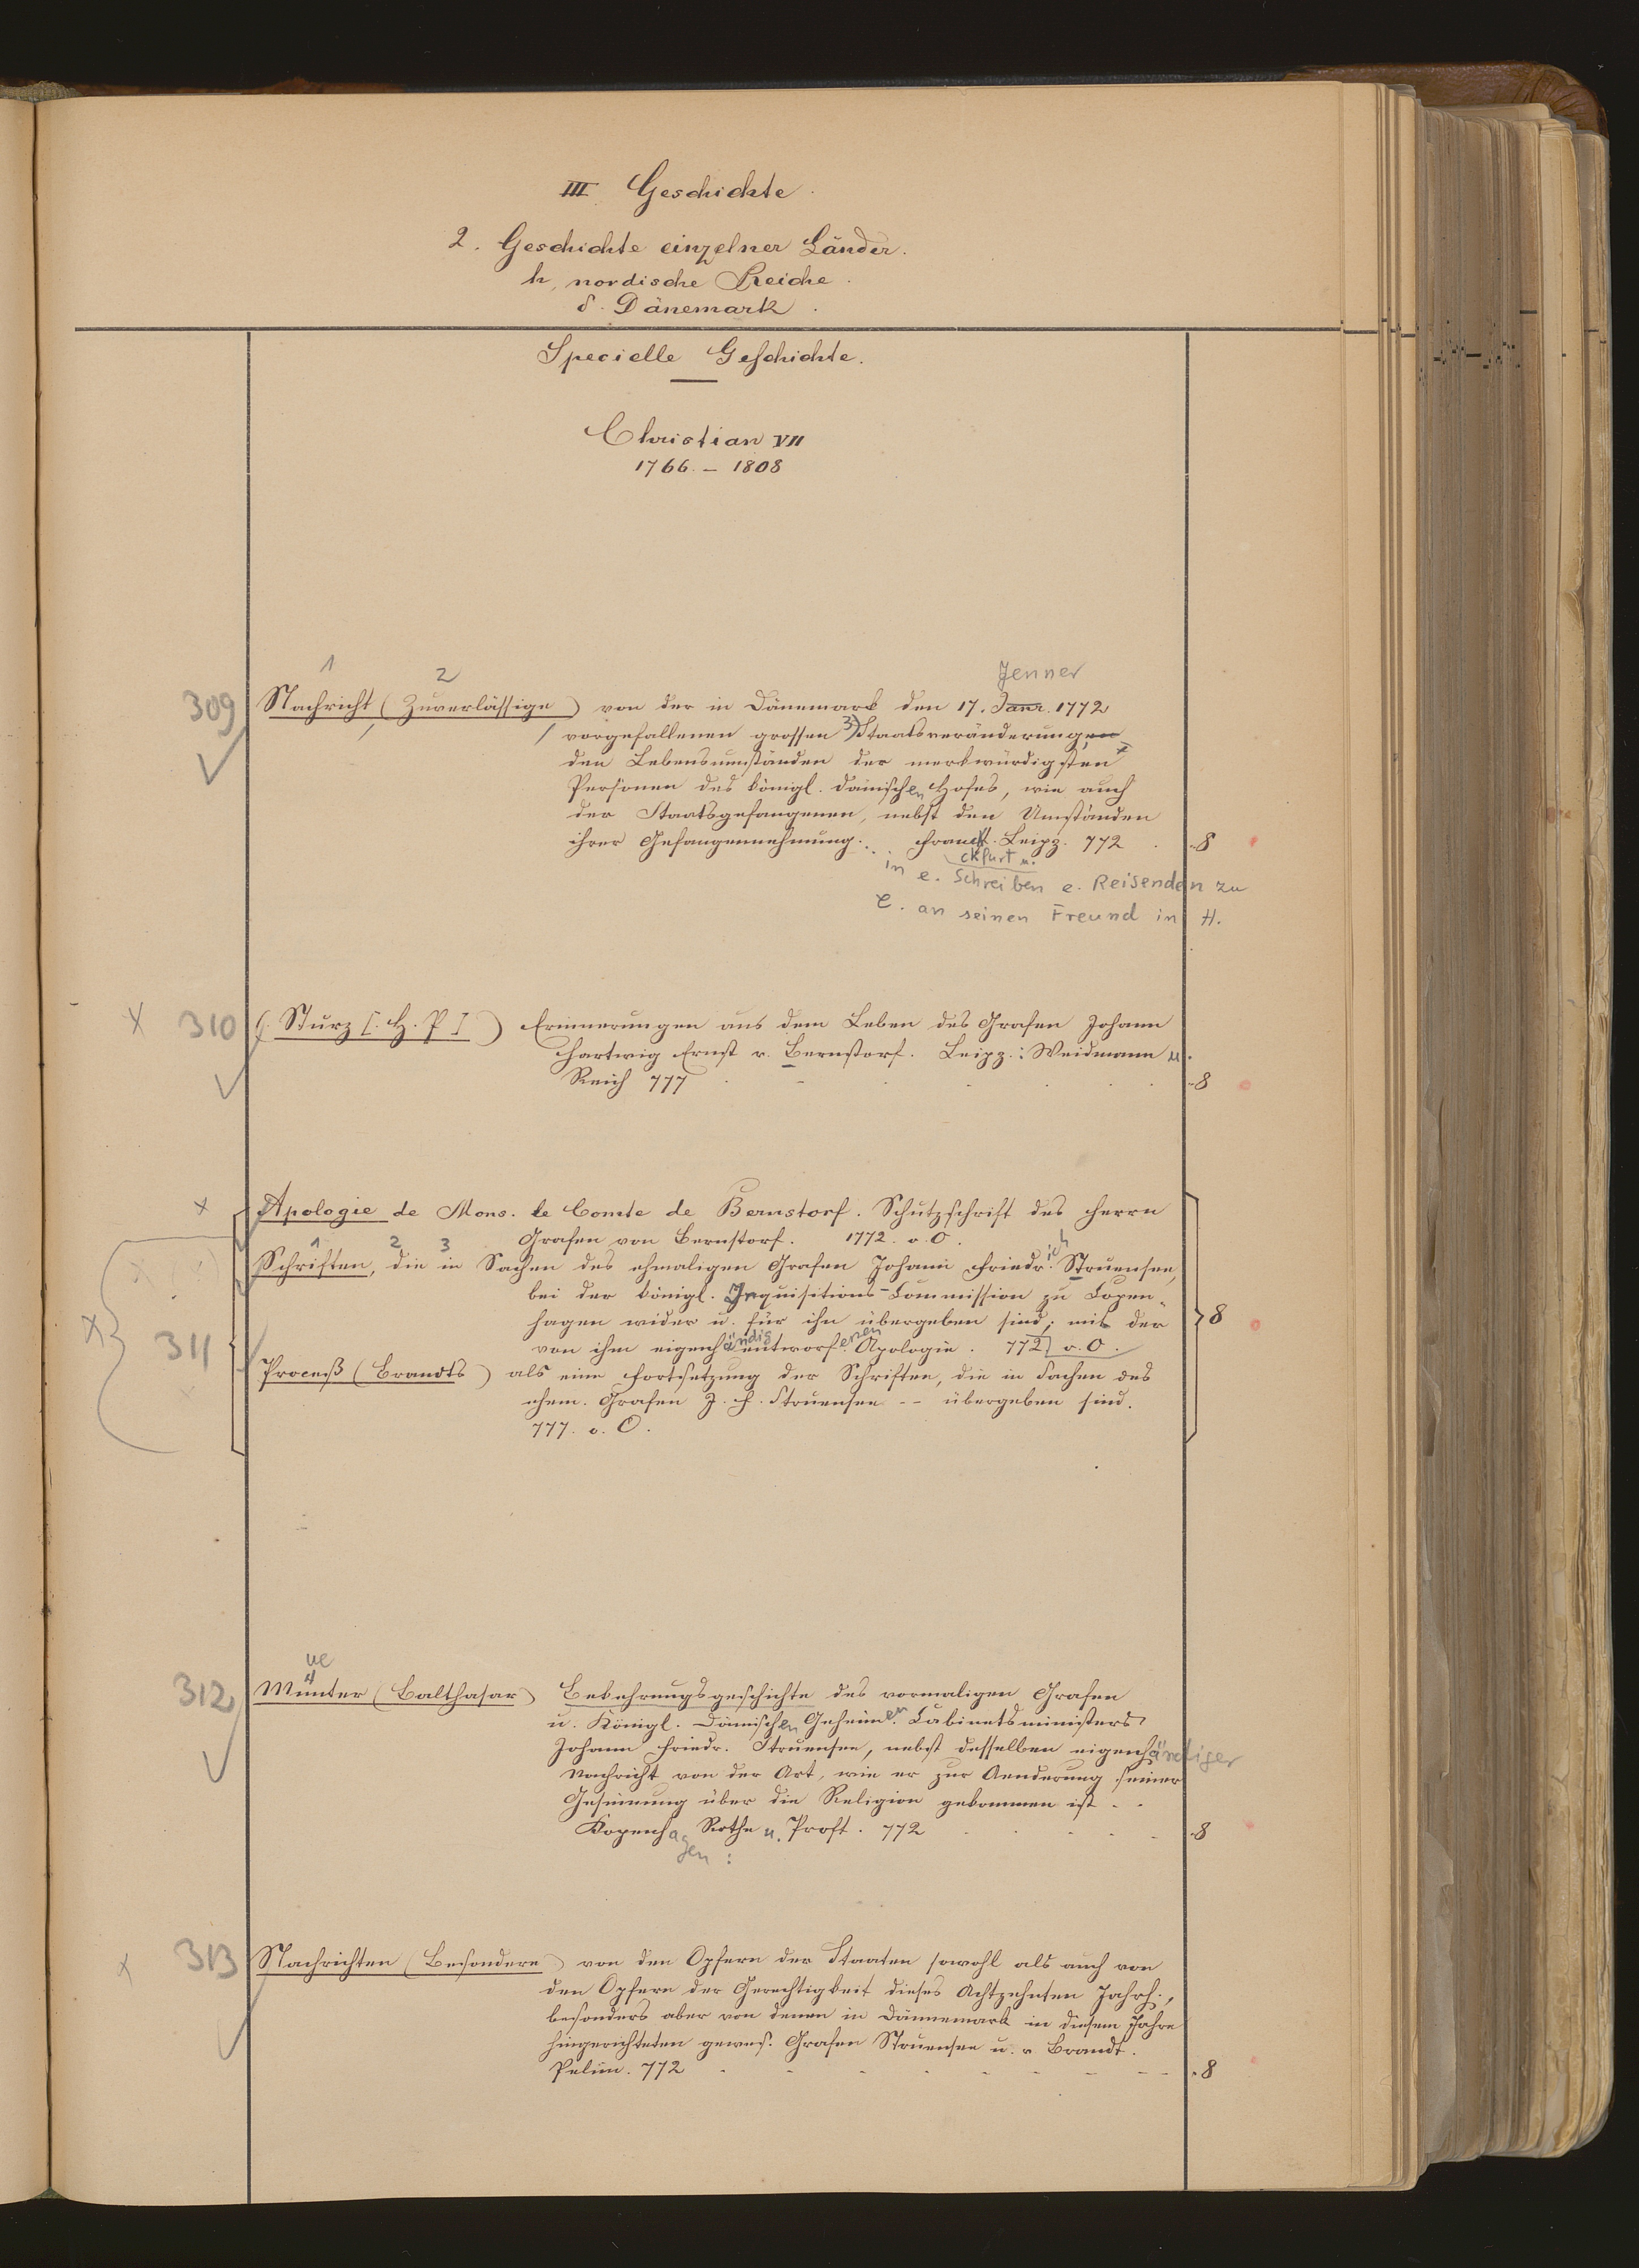 III Geschichte.
2. Geschichte einzelner Länder.
h, nordische Reiche.
δ. Dänemark.
Specielle Geschichte.
Christian VII
1766 – 1808
1 2 Jenner
309 Nachricht (Zuverlässige) von der in Dänemark den 17. Janr. 1772
vorgefallenen grossen 3) Staatsveränderungen
den Lebensumständen der merkwürdigsten
Personen des königl. dänischen Hofes, wie auch
der Staatsgefangenen, nebst den Umständen
ihrer Gefangennehmung. Franckf. Leipz. 772 . 8
ckfurt u.
in e. Schreiben e. Reisenden zu
C. an seinen Freund in H.
x 310 (. Sturz [. H. P ] ) Erinnerungen aus dem Leben des Grafen Johann
Hartwig Ernst v. Bernstorf. Leipz.: Weidmann u.
Reich 777 . 8
x Apologie de Mons. le Comte de Bernstorf. Schutzschrift des Herrn
Grafen von Bernstorf. 1772. o. O.
1 2 3 ich
Schriften, die in Sachen des ehmaligen Grafen Johann Friedr. Struensee,
bei der königl. Inquisitions-Commission zu Copen-
hagen wider u. für ihn übergeben sind; mit der
x 311 von ihm eigenhändig entworfenen Apologie. 772 o. O. 8
Proceß (Brandts) als eine Fortsetzung der Schriften, die in Sachen des
ehem. Grafen J. F. Struensee -- übergeben sind.
777. o. O.
ue
312 Münter (Balthasar) Bekehrungsgeschichte des vormaligen Grafen
u. Königl. Dänischen Geheimen Cabinetsministers
Johann Friedr. Struensee, nebst desselben eigenhändiger
Nachricht von der Art, wie er zur Aenderung seiner
Gesinnung über die Religion gekommen ist --
Kopenhagen: Rothe u. Proft. 772 . 8
x 313 Nachrichten (Besondere) von den Opfern der Staaten sowohl als auch von
den Opfern der Gerechtigkeit dieses Achtzehnten Jahrh.,
besonders aber von denen in Dännemark in diesem Jahre
hingerichteten gewes. Grafen Struensee u. v Brandt.
Pelim. 772 . 8